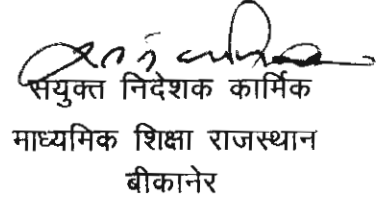 संयुक्त निदेशक कार्मिक
माध्यमिक शिक्षा राजस्थान
बीकानेर